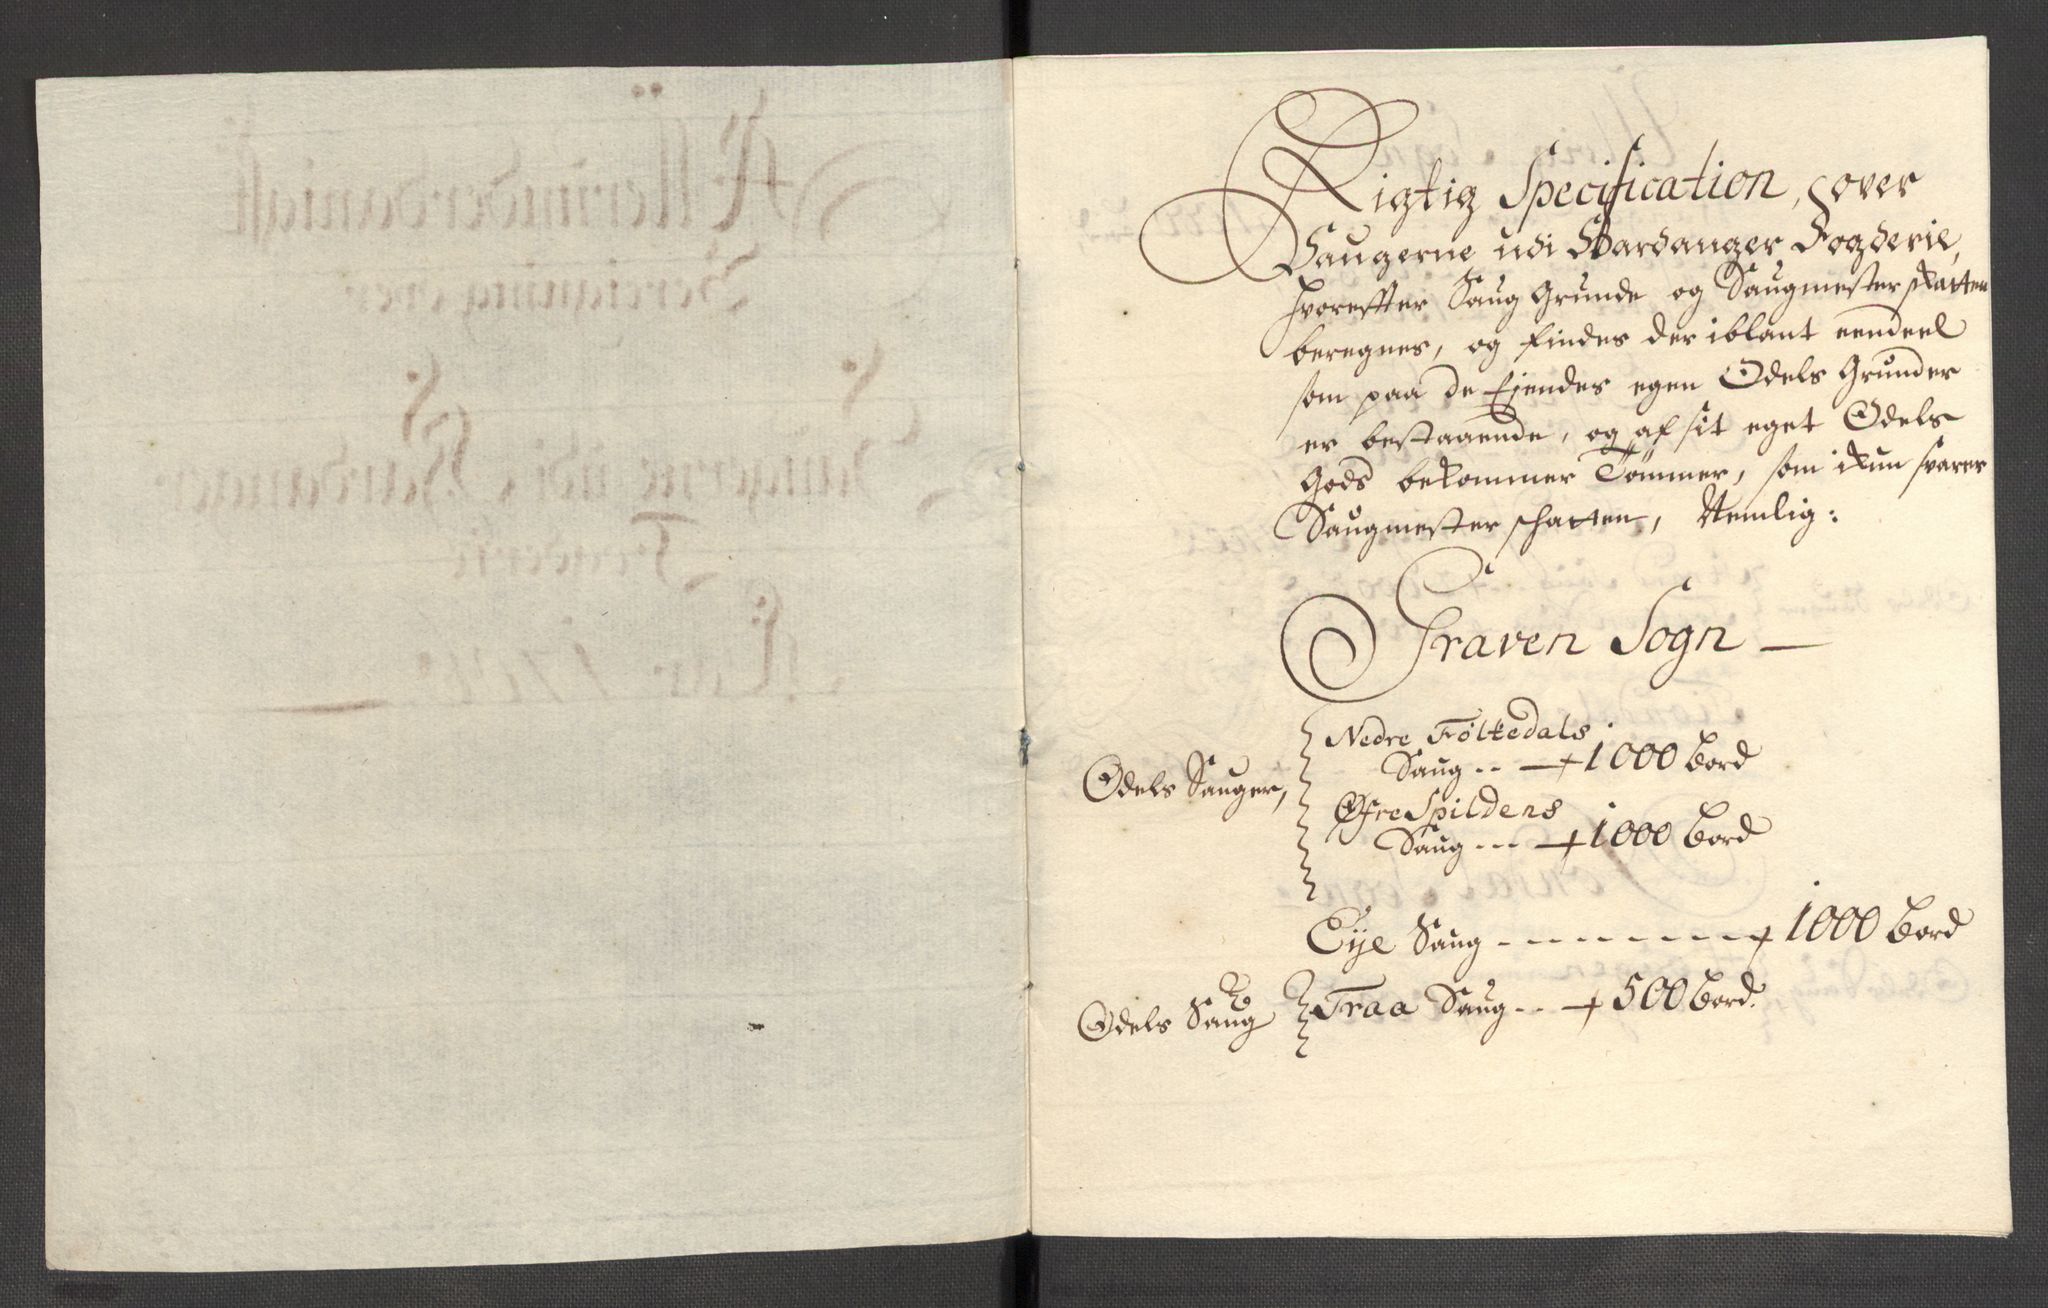 Rigtig Specification, over
Saugerne udi Hardanger Fogderie,
hvoreffter Saug Grunde og Saugmester skatten
beregnes, og findes der iblant eendeel
som paa de Ejendes egen Odels Grunder
er bestaaende, og af sit eget Odels
Gods bekommer Tømmer, som ikun svarer
Saugmester schatten, Nemlig:
Graven Sogn
Odels Sauger,
Nedre Følkedals
Saug .. 1000 bord
Øfre Spildens
Saug ... 1000 bord
Eije Saug - - - - - - - 1000 bord
Odels Saug
Traa Saug .. 500 bord.